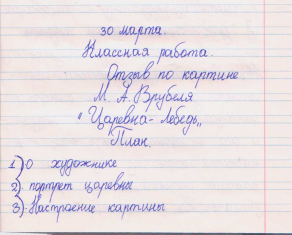 30 марта.
Классная работа.
Отзыв по картине
М. А. Врубеля
"Царевна-Лебедь"
План.
1) О художнике
2). портрет царевны
3). Настроение картины